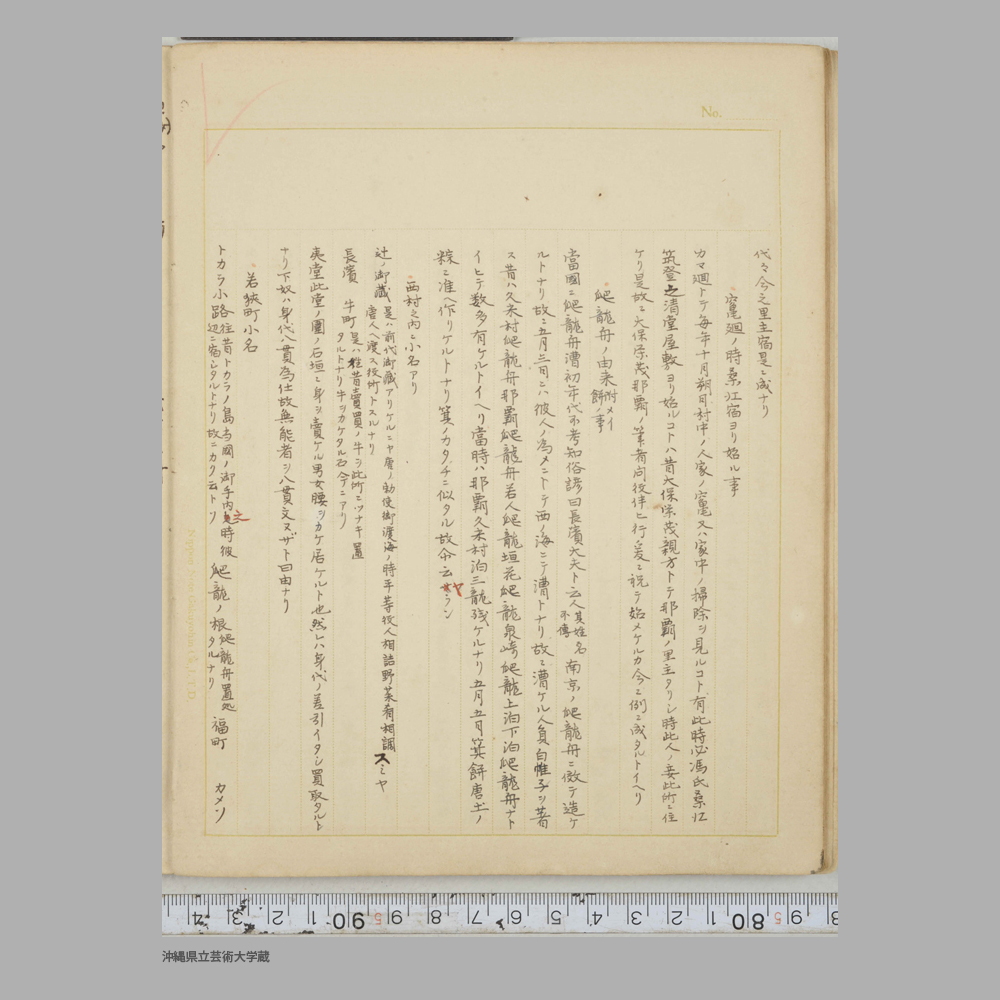 No.
代々今之里主宿是ニ成ナリ
竃廻ノ時桑江宿ヨリ始ル事
カマ廻トテ毎年十月朔日村中ノ人家ノ竃又ハ家中ノ掃除ヲ見ルコト有此時必馮氏桑江
筑登之清堂屋敷ヨリ始ルコトハ昔大保栄茂親方トテ那覇ノ里主タリシ時此人ノ妾此所ニ住
ケリ是故ニ大保栄茂那覇ノ筆者同役伴ヒ行爰ニ祝テ始メケルカ今ニ例ニ成タルトイヘリ
爬龍舟ノ由来附メイ餅ノ事
當國ニ爬龍舟漕初年代不考知俗諺曰長濱大夫ト云人其姓名不傳南京ノ爬龍舟ニ倣テ造ケ
ルトナリ故ニ五月三日ニハ彼人ノ為メニトテ西ノ海ニテ漕トナリ故ニ漕ケル人負白帷子ヲ著
ス昔ハ久米村爬龍舟那覇爬龍舟若人爬龍垣花爬龍泉崎爬龍上泊下泊爬龍舟ナト
イヒテ数多有ケルトイヘリ當時ハ那覇久米村泊三龍残ケルナリ五月五日箕餅唐土ノ
粽ニ准ヘ作リケルトナリ箕ノカタチニ似タル故今云ヤラン
西村之内ニ小名アリ
辻ノ御蔵是ハ前代御蔵アリケルニヤ唐ノ勅使御渡海ノ時平等役人相詰野菜肴相調スミヤ
唐人ヘ渡ス技術トスルナリ
長濱 牛町是ハ往昔賣買ノ牛ヲ此所ニツナキ置
タルトナリ牛ヲカケタル石今ニアリ
夷堂此堂ノ圍ノ石垣ニ身ヲ賣ケル男女腰ヲカケ居ケルト也然レハ身代ノ差引イタシ買取タルト
ナリ下奴ハ身代八貫為仕故無能者ヲ八貫文ヌザト曰由ナリ
若狭町小名
トカラ小路往昔トカラノ島当國ノ御手内之時彼爬龍ノ根爬龍舟置処福町 カメソ
辺ニ宿シタルトナリ故ニカク云トソ タルナリ
80
90
沖縄県立芸術大学蔵